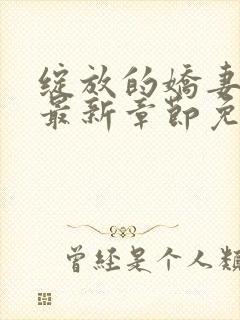 绽放的娇妻
最新章節免
曾经是个人類